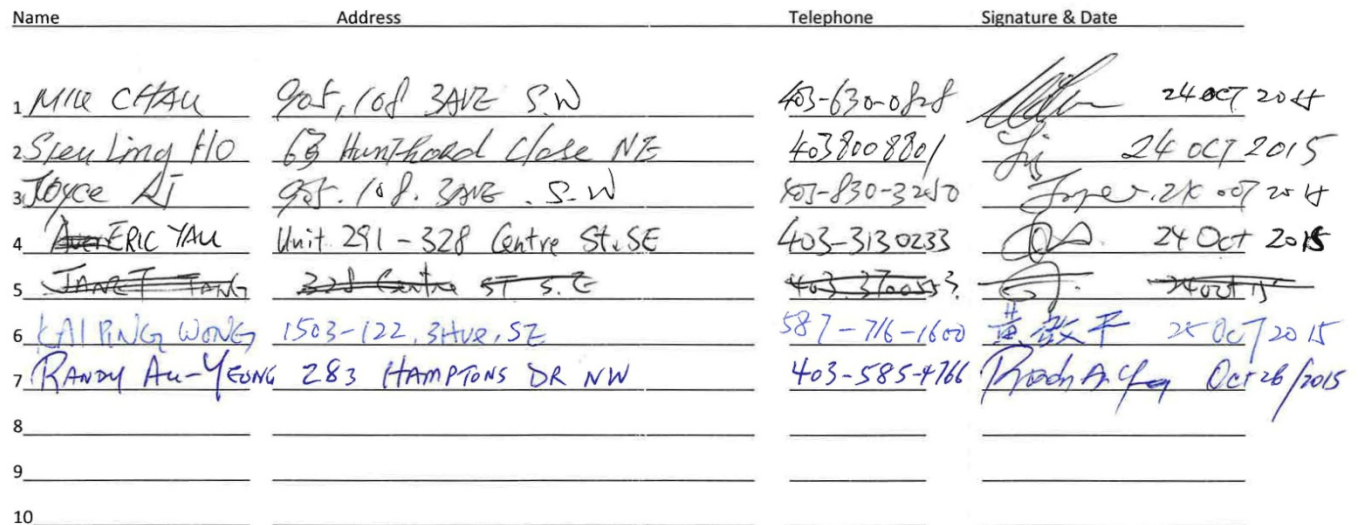 Name Address Telephone Signature & Date
1 MIKE CHAU 905, 108 3AVE S.W 403-630-0828 24 OCT 2015
2 Sieu Ling HO 63 Close NE 4038008801 24 OCT 2015
3 Joyce 905. 108. 3AVE. S.W 403-830-3250 Joyce 24 OCT 2015
4 ERIC YAU Unit 291 - 328 Centre St. SE 403-3130233 24 Oct 2015
5 JANET TANG 328 Centre ST S.E 24 oct 15
6 KAI PING WONG 1503-122, 3Ave, SE 587-716-1600 平 25 OCT 2015
7 RANDY AU-YEUNG 283 HAMPTONS DR NW 403-585-4766 Oct 26/2015
8
9
10